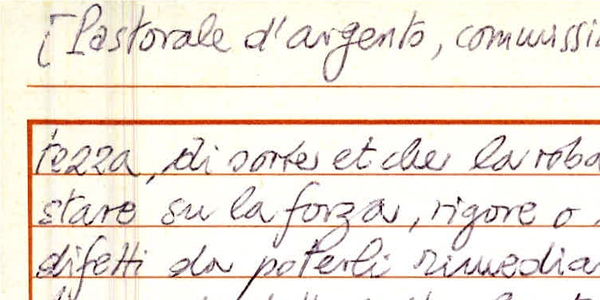 [Pastorale d'argento, commissi
tezza, di sorte et che la roba
stare su la forza, rigore o
difetti da poterli rimedia